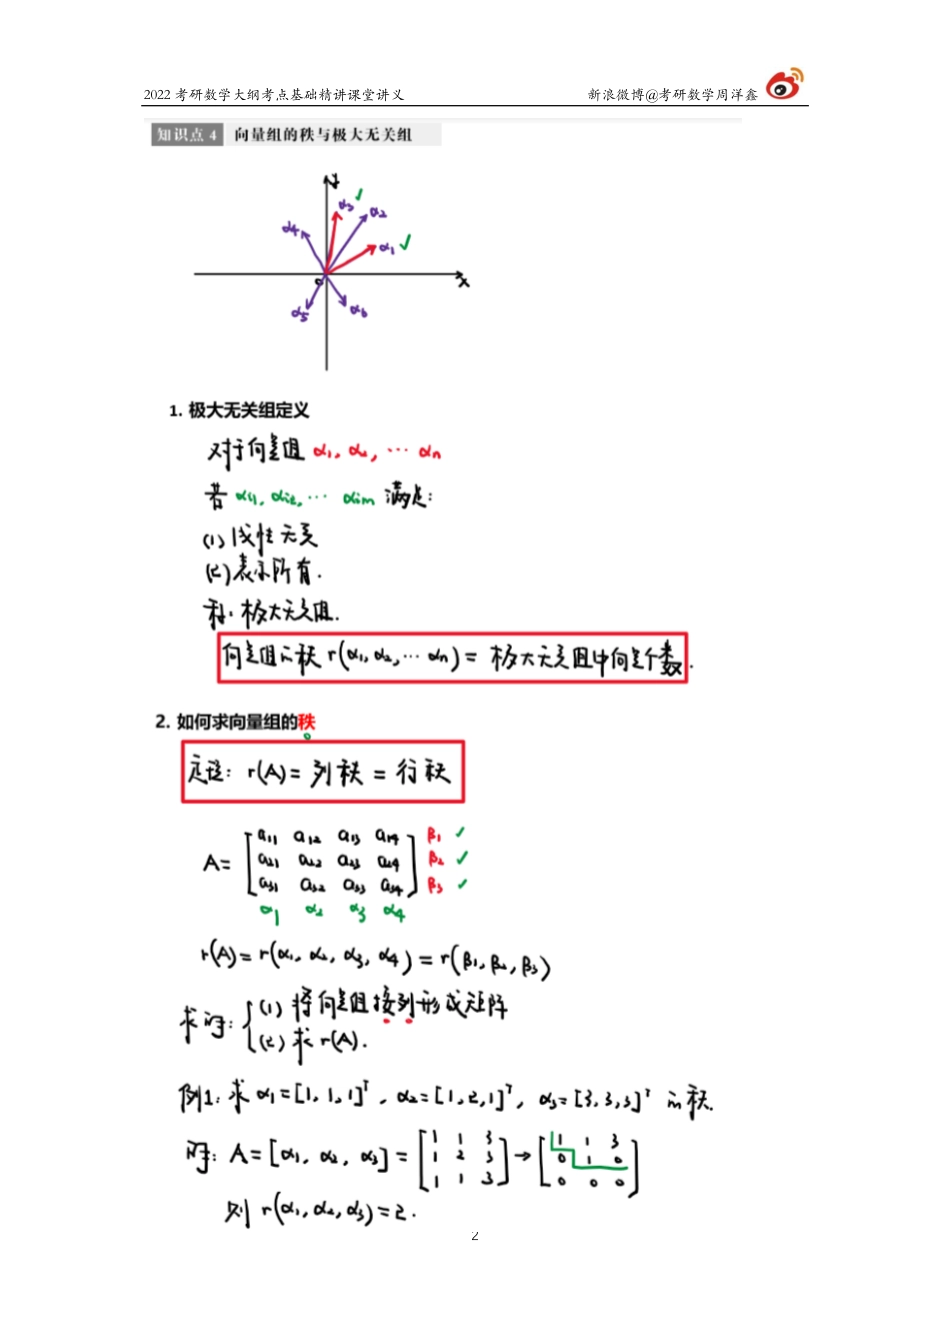 2022 考研数学大纲考点基础精讲课堂讲义 新浪微博@考研数学周洋鑫
知识点 4 向量组的秩与极大无关组
y
α3 ✓ α2
α4 α1 ✓
o x
α5 α6
1. 极大无关组定义
对于向量组 α1, α2, … αn
若 αi1, αi2, … αim 满足:
(1) 线性无关
(2) 表示所有.
称: 极大无关组.
向量组的秩 r(α1, α2, … αn) = 极大无关组中向量个数.
2. 如何求向量组的秩
定理: r(A) = 列秩 = 行秩
a11 a12 a13 a14 β1 ✓
A = a21 a22 a23 a24 β2 ✓
a31 a32 a33 a34 β3 ✓
α1 α2 α3 α4
r(A) = r(α1, α2, α3, α4) = r(β1, β2, β3)
求解: { (1) 将向量组按列形成矩阵
(2) 求 r(A).
例1: 求 α1 = [1, 1, 1]ᵀ, α2 = [1, 2, 1]ᵀ, α3 = [3, 3, 3]ᵀ 的秩.
1 1 3 1 1 3
解: A = [α1, α2, α3] = 1 2 3 → 0 1 0
1 1 3 0 0 0
则 r(α1, α2, α3) = 2.
2